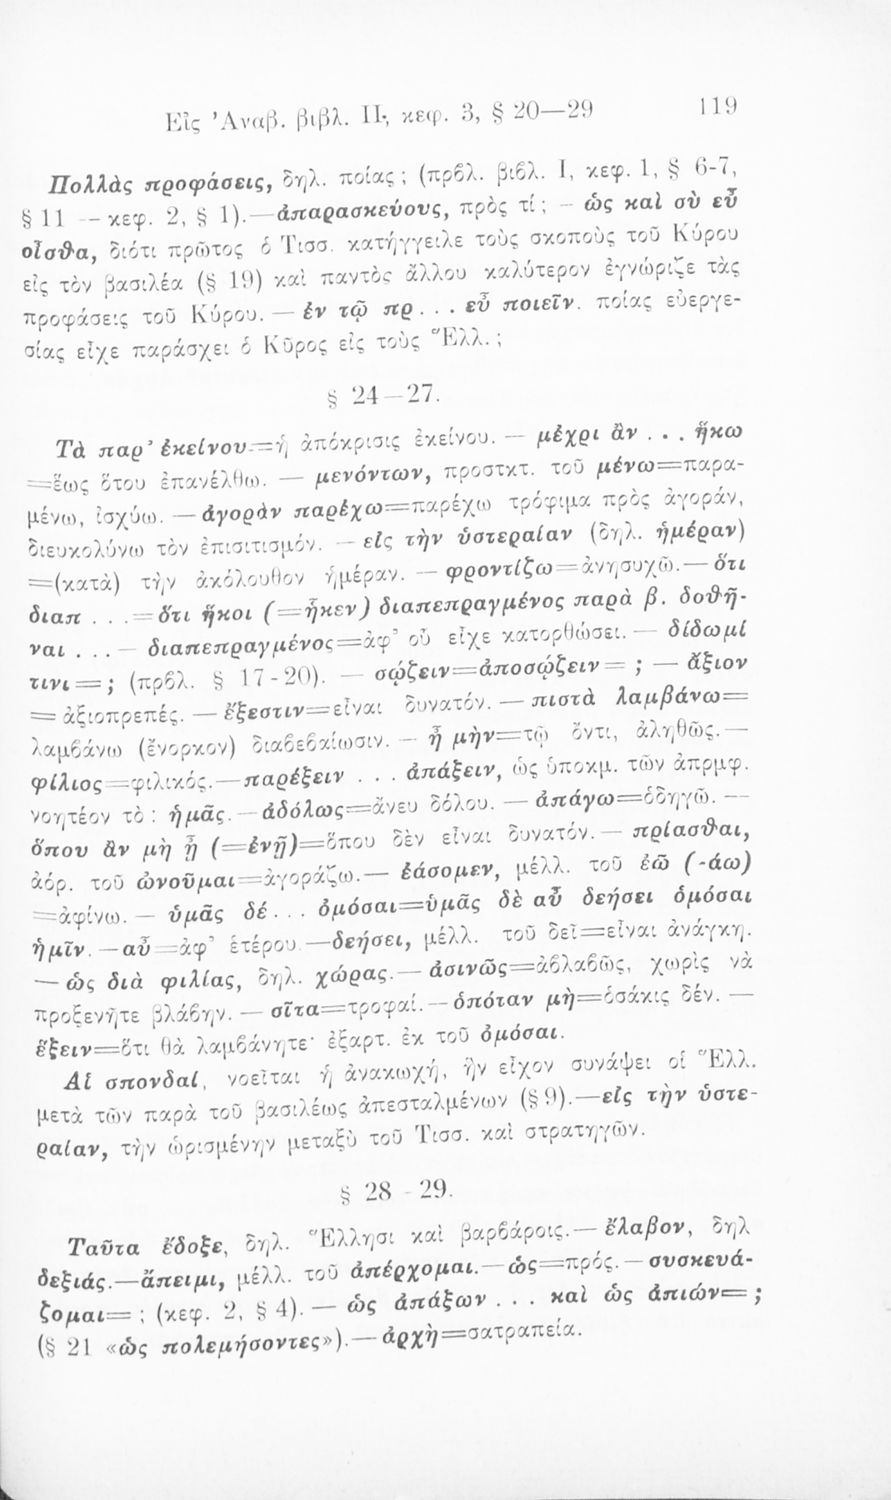 Εἰς Ἀναβ. βιβλ. ΙΙ, κεφ. 3, § 20—29 119
Πολλὰς προφάσεις, δηλ. ποίας; (πρβλ. βιβλ. Ι, κεφ. 1, § 6-7,
§ 11 — κεφ. 2, § 1).— ἀπαρασκεύους, πρὸς τί; — ὡς καὶ σὺ εὖ
οἶσθα, διότι πρῶτος ὁ Τισσ. κατήγγειλε τοὺς σκοποὺς τοῦ Κύρου
εἰς τὸν βασιλέα (§ 19) καὶ παντὸς ἄλλου καλύτερον ἐγνώριζε τὰς
προφάσεις τοῦ Κύρου. — ἐν τῷ πρ . . . εὖ ποιεῖν. ποίας εὐεργε-
σίας εἶχε παράσχει ὁ Κῦρος εἰς τοὺς Ἕλλ.;
§ 24—27.
Τὰ παρ' ἐκείνου=ἡ ἀπόκρισις ἐκείνου. — μέχρι ἂν . . . ἥκω
=ἕως ὅτου ἐπανέλθω. — μενόντων, προστκτ. τοῦ μένω=παρα-
μένω, ἰσχύω. — ἀγορὰν παρέχω=παρέχω τρόφιμα πρὸς ἀγοράν,
διευκολύνω τὸν ἐπισιτισμόν. — εἰς τὴν ὑστεραίαν (δηλ. ἡμέραν)
=(κατὰ) τὴν ἀκόλουθον ἡμέραν. — φροντίζω=ἀνησυχῶ.— ὅτι
διαπ . . .=ὅτι ἥκοι (=ἧκεν) διαπεπραγμένος παρὰ β. δοθῆ-
ναι . . . — διαπεπραγμένος=ἀφ' οὗ εἶχε κατορθώσει. — δίδωμί
τινι=; (πρβλ. § 17-20). — σῴζειν=ἀποσῴζειν=; — ἄξιον
= ἀξιοπρεπές. — ἔξεστιν=εἶναι δυνατόν. — πιστὰ λαμβάνω=
λαμβάνω (ἔνορκον) διαβεβαίωσιν. — ἦ μὴν=τῷ ὄντι, ἀληθῶς.—
φίλιος=φιλικός.— παρέξειν . . . ἀπάξειν, ὡς ὑποκμ. τῶν ἀπρμφ.
νοητέον τὸ: ἡμᾶς.— ἀδόλως=ἄνευ δόλου. — ἀπάγω=ὁδηγῶ. —
ὅπου ἂν μὴ ᾖ (=ἐνῇ)=ὅπου δὲν εἶναι δυνατόν.— πρίασθαι,
ἀόρ. τοῦ ὠνοῦμαι=ἀγοράζω.— ἐάσομεν, μέλλ. τοῦ ἐῶ (-άω)
=ἀφίνω. — ὑμᾶς δέ . . . ὀμόσαι=ὑμᾶς δὲ αὖ δεήσει ὀμόσαι
ἡμῖν. — αὖ=ἀφ' ἑτέρου.—δεήσει, μέλλ. τοῦ δεῖ=εἶναι ἀνάγκη.
— ὡς διὰ φιλίας, δηλ. χώρας.— ἀσινῶς=ἀβλαβῶς, χωρὶς νὰ
προξενῆτε βλάβην. — σῖτα=τροφαί.— ὁπόταν μὴ=ὁσάκις δέν. —
ἕξειν=ὅτι θὰ λαμβάνητε· ἐξαρτ. ἐκ τοῦ ὀμόσαι.
Αἱ σπονδαί, νοεῖται ἡ ἀνακωχή, ἣν εἶχον συνάψει οἱ Ἕλλ.
μετὰ τῶν παρὰ τοῦ βασιλέως ἀπεσταλμένων (§ 9).—εἰς τὴν ὑστε-
ραίαν, τὴν ὡρισμένην μεταξὺ τοῦ Τισσ. καὶ στρατηγῶν.
§ 28 - 29.
Ταῦτα ἔδοξε, δηλ. Ἕλλησι καὶ βαρβάροις.— ἔλαβον, δηλ
δεξιάς.—ἄπειμι, μέλλ. τοῦ ἀπέρχομαι.— ὡς=πρός.— συσκευά-
ζομαι=; (κεφ. 2, § 4). — ὡς ἀπάξων . . . καὶ ὡς ἀπιών=;
(§ 21 «ὡς πολεμήσοντες»).— ἀρχὴ=σατραπεία.